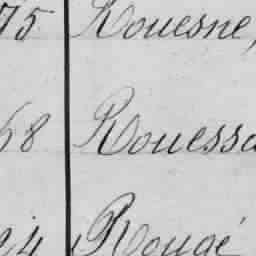 75 Rouesne,
68 Rouessa
24 Rougé